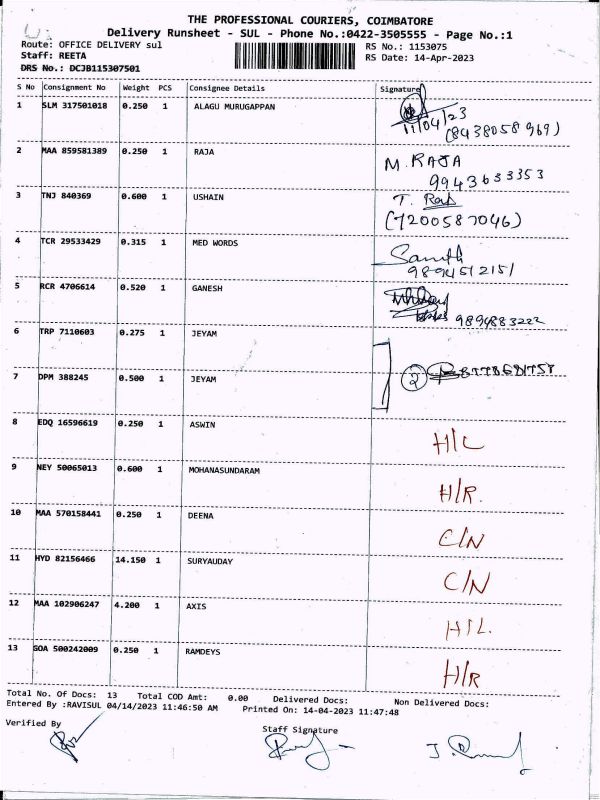 THE PROFESSIONAL COURIERS, COIMBATORE
Delivery Runsheet - SUL - Phone No.:0422-3505555 - Page No.:1
Route: OFFICE DELIVERY sul RS No.: 1153075
Staff: REETA RS Date: 14-Apr-2023
DRS No.: DCJB115307501
S No Consignment No Weight PCS Consignee Details Signature
1 SLM 317501018 0.250 1 ALAGU MURUGAPPAN
11/04/23
(8438058969)
2 MAA 859581389 0.250 1 RAJA M. RAJA
9943633353
3 TNJ 840369 0.600 1 USHAIN T.
(7200587046)
4 TCR 29533429 0.315 1 MED WORDS
9894512151
5 RCR 4706614 0.520 1 GANESH
9894883222
6 TRP 7110603 0.275 1 JEYAM
2
7 DPM 388245 0.500 1 JEYAM
8 EDQ 16596619 0.250 1 ASWIN H/L
9 NEY 50065013 0.600 1 MOHANASUNDARAM H/R.
10 MAA 570158441 0.250 1 DEENA C/N
11 HYD 82156466 14.150 1 SURYAUDAY C/N
12 MAA 102906247 4.200 1 AXIS H/L.
13 GOA 500242009 0.250 1 RAMDEYS H/R
Total No. Of Docs: 13 Total COD Amt: 0.00 Delivered Docs: Non Delivered Docs:
Entered By :RAVISUL 04/14/2023 11:46:50 AM Printed On: 14-04-2023 11:47:48
Verified By Staff Signature